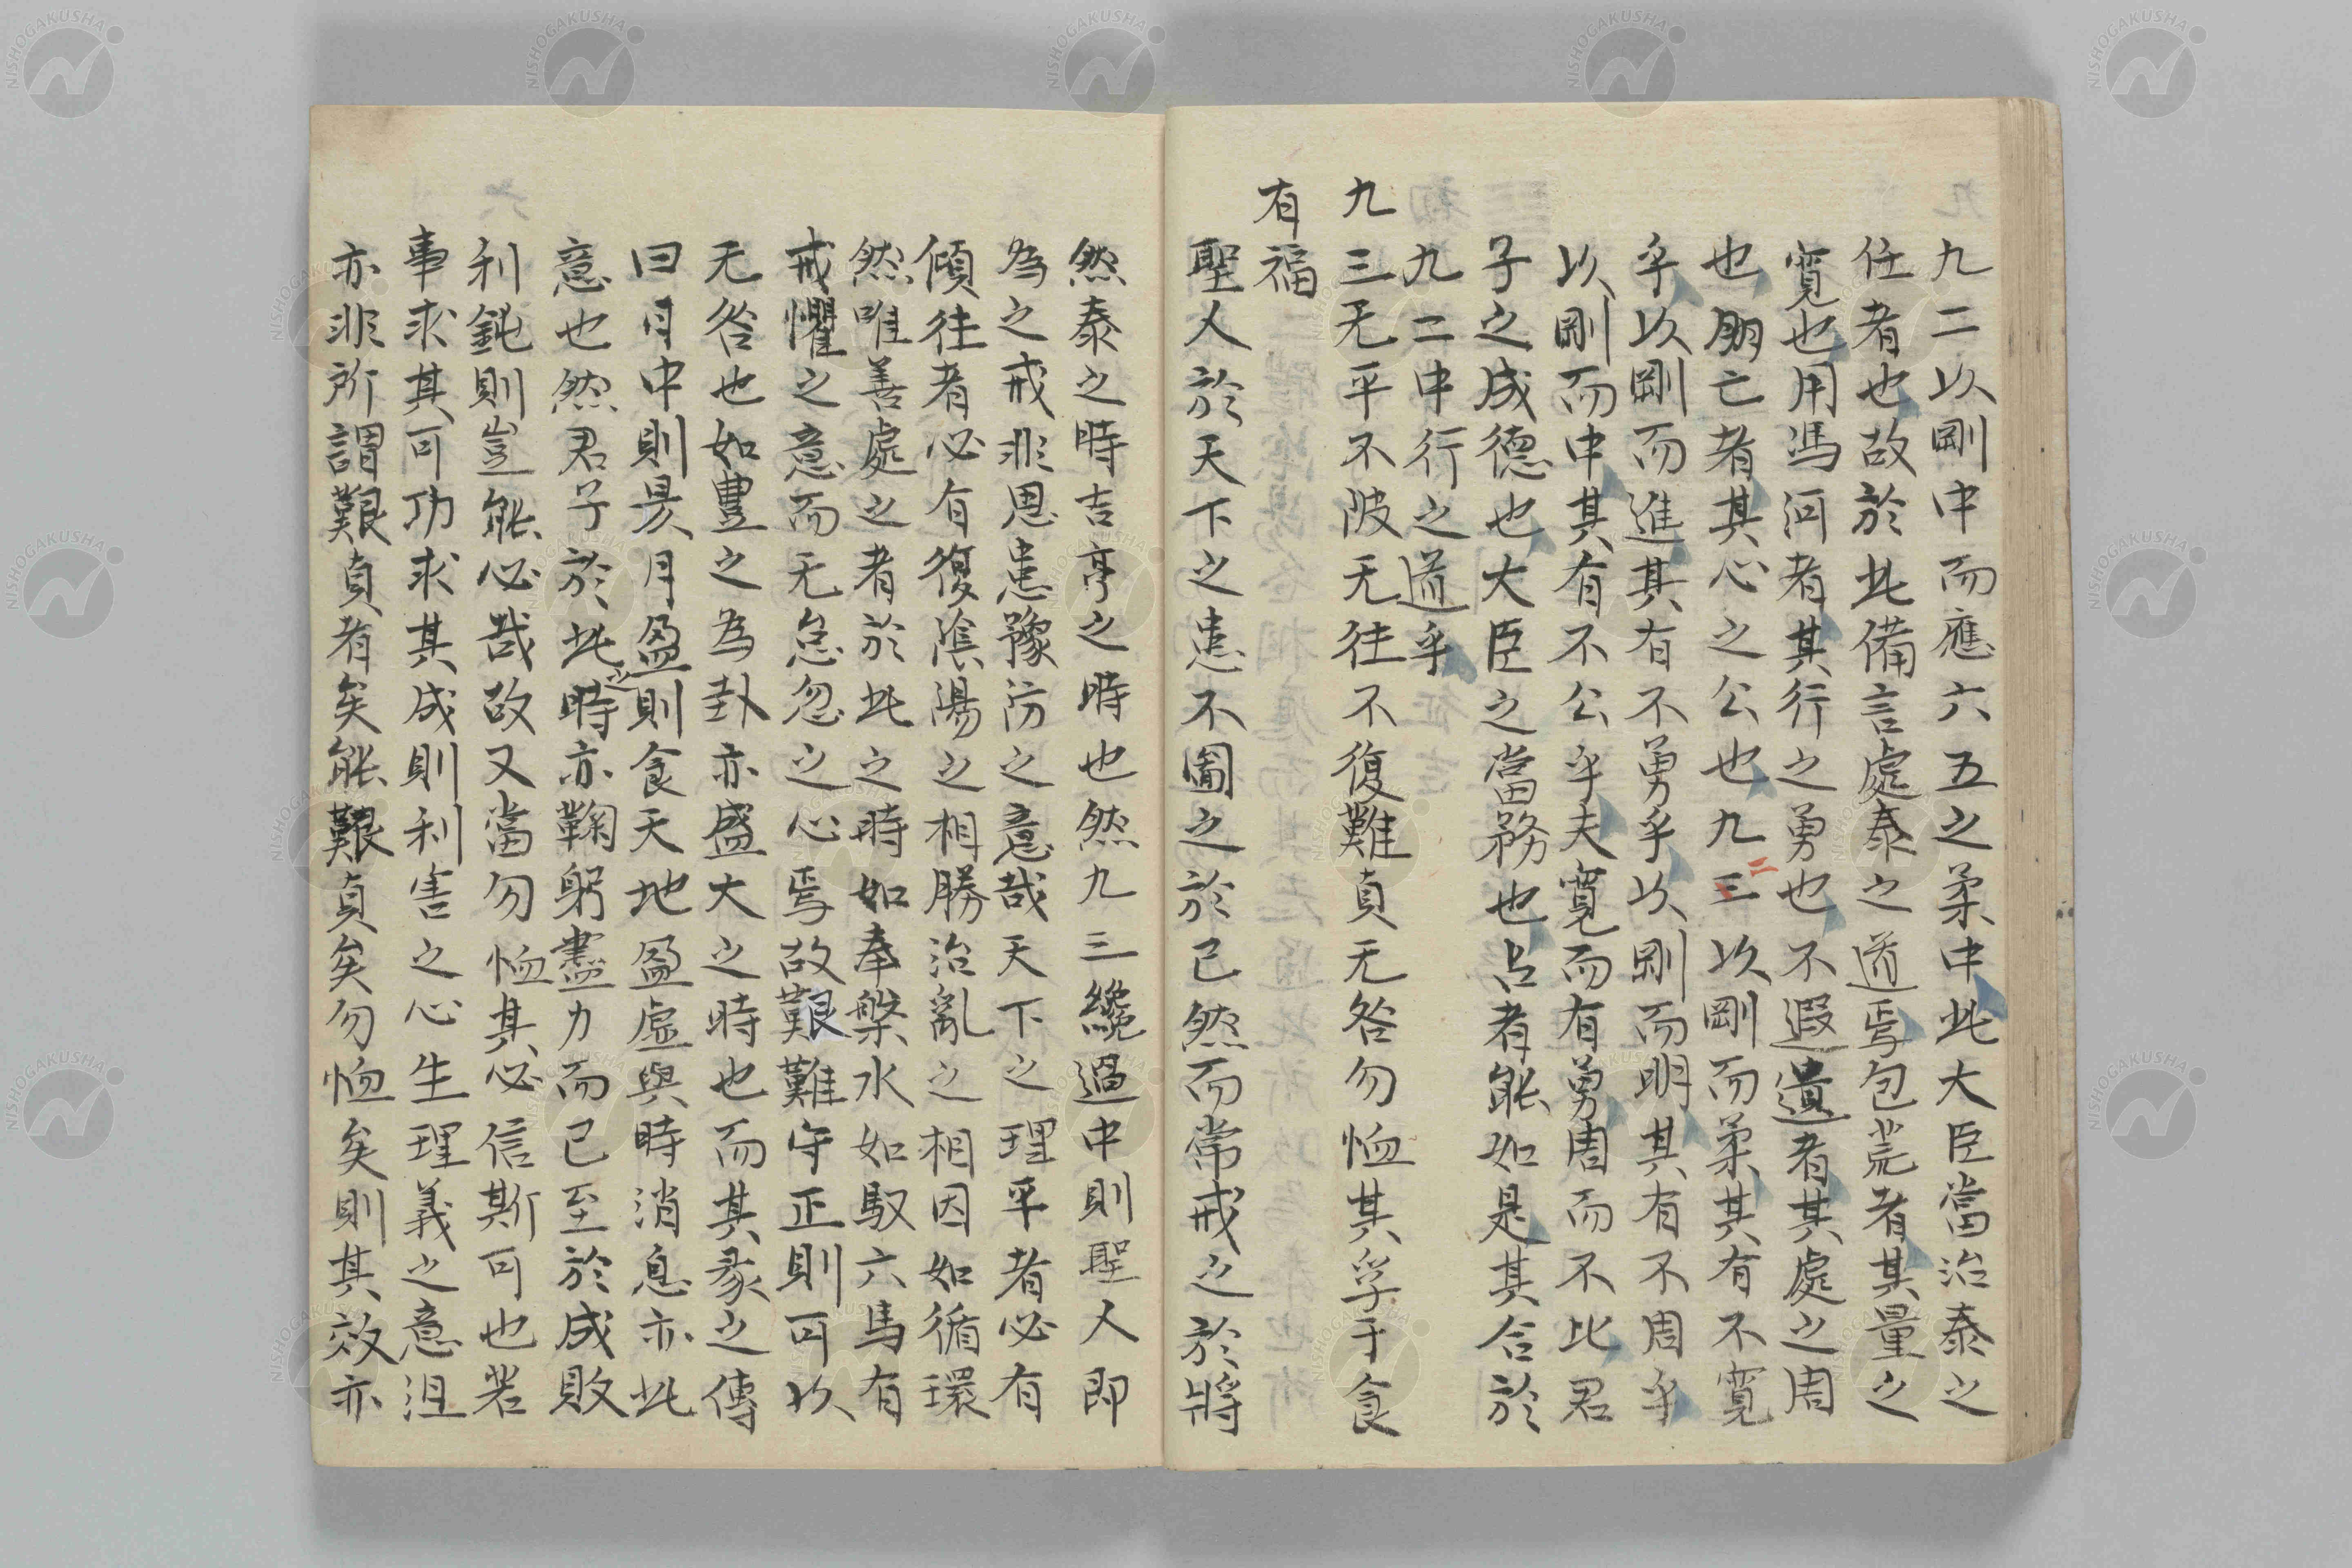 九二以剛中而應六五之柔中此大臣當治泰之
任者也故於此備言處泰之道焉包荒者其量之
寬也用馮河者其行之勇也不遐遺者其處之周
也朋亡者其心之公也九三二以剛而柔其有不寬
乎以剛而進其有不勇乎以剛而明其有不周乎
以剛而中其有不公乎夫寬而有勇周而不比君
子之成德也大臣之當務也占者能如是其合於
九二中行之道乎
九三无平不陂无往不復難貞无咎勿恤其孚于食
有福
聖人於天下之患不圖之於已然而常戒之於將
然泰之時吉亨之時也然九三纔過中則聖人即
為之戒非思患豫防之意哉天下之理平者必有
傾往者必有復陰陽之相勝治亂之相因如循環
然唯善處之者於此之時如奉槃水如馭六馬有
戒懼之意而无怠忽之心焉故艱難守正則可以
无咎也如豊之為卦亦盛大之時也而其彖之傳
曰日中則昃月盈則食天地盈虛與時消息亦此
意也然君子於此之時亦鞠躬盡力而已至於成敗
利鈍則豈能必哉故又當勿恤其必信斯可也若
事求其可功求其成則利害之心生理義之意沮
亦非所謂艱貞者矣能艱貞矣勿恤矣則其效亦
NISHOGAKUSHA